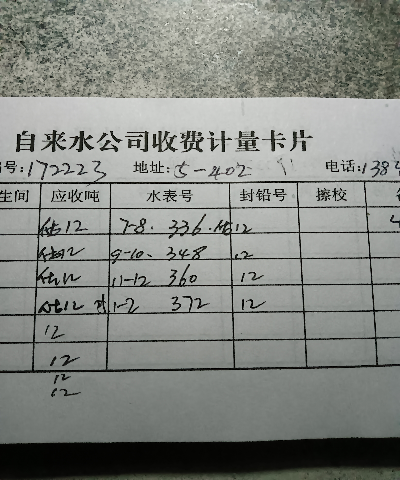 自来水公司收费计量卡片
号:172223 地址:5-402 电话:138
生间 应收吨 水表号 封铅号 擦校
估12 7-8. 336. 估12
估12 9-10. 348 12
估12 11-12 360 12
估12 1-2 372 12
12
12
12
12